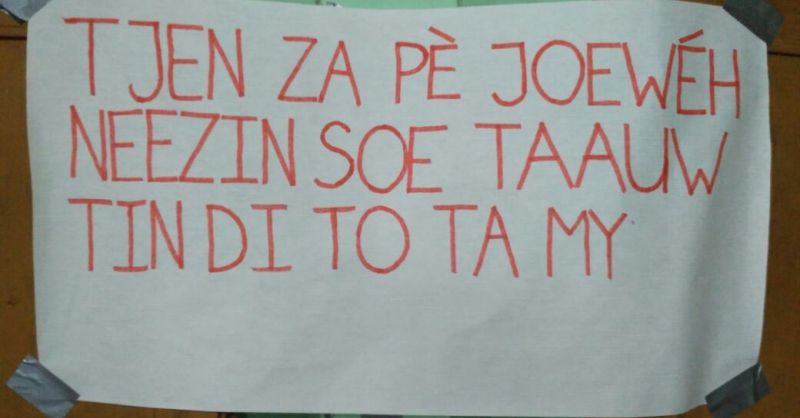 TJEN ZA PÈ JOEWÉH
NEEZIN SOE TAAUW
TIN DI TO TA MY